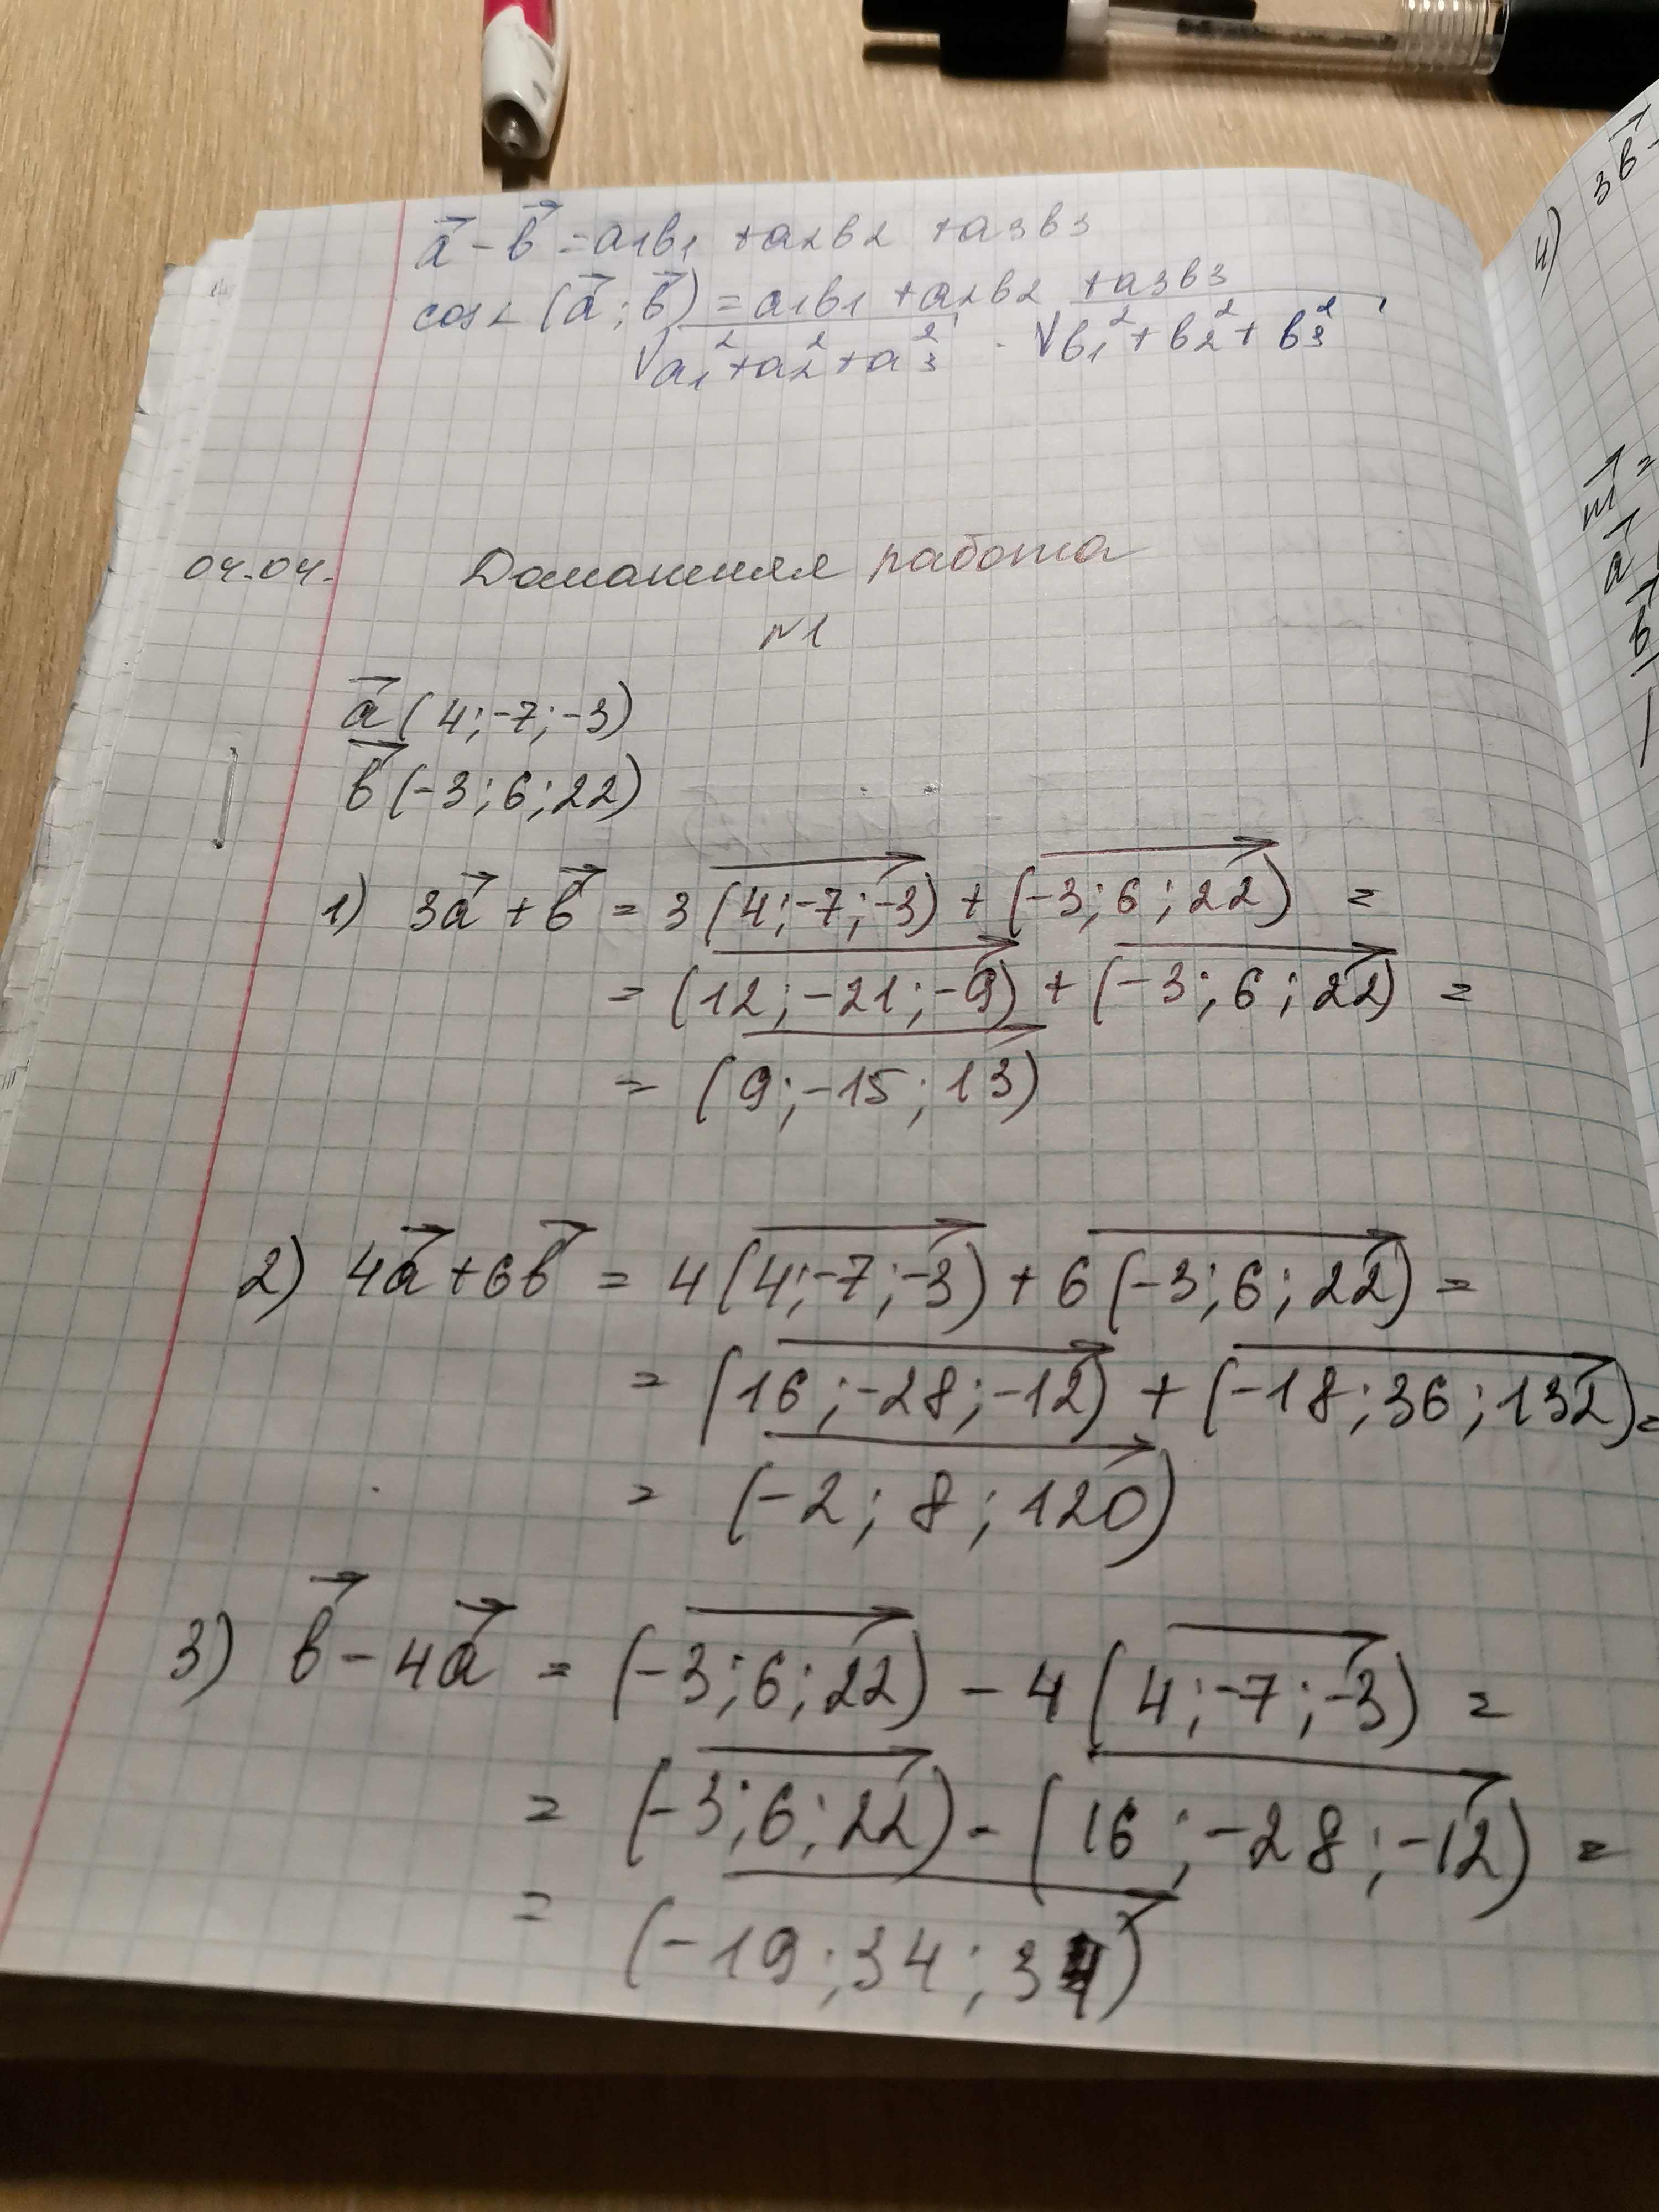 a⃗ - b⃗ = a1b1 + a2b2 + a3b3
cos∠(a⃗; b⃗) = a1b1 + a2b2 + a3b3
√a1² + a2² + a3² · √b1² + b2² + b3²
04.04. Домашняя работа
№1
a⃗(4;-7;-3)
b⃗(-3;6;22)
1) 3a⃗ + b⃗ = 3(4;-7;-3) + (-3;6;22) =
= (12;-21;-9) + (-3;6;22) =
= (9;-15;13)
2) 4a⃗ + 6b⃗ = 4(4;-7;-3) + 6(-3;6;22) =
= (16;-28;-12) + (-18;36;132) =
= (-2;8;120)
3) b⃗ - 4a⃗ = (-3;6;22) - 4(4;-7;-3) =
= (-3;6;22) - (16;-28;-12) =
= (-19;34;34)
4) 3b⃗ -
m⃗ =
a⃗
b⃗